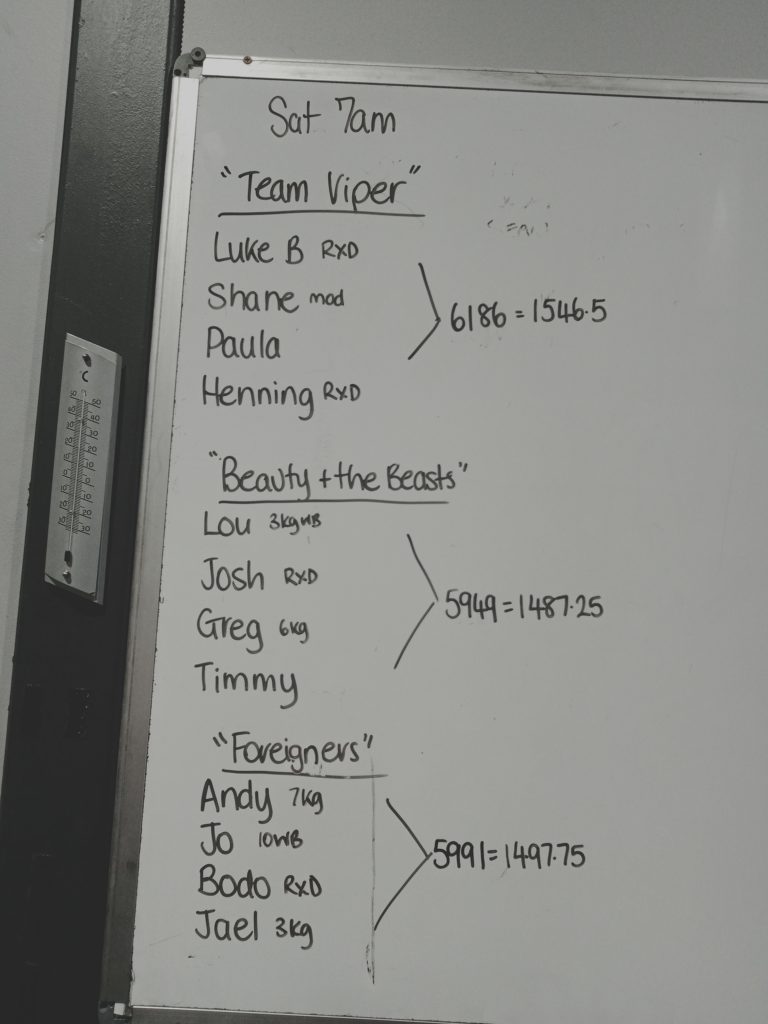 Sat 7am
"Team Viper"
Luke B RXD
Shane mod
6186 = 1546.5
Paula
Henning RXD
"Beauty + the Beasts"
Lou 3kg WB
Josh RXD
5949 = 1487.25
Greg 6kg
Timmy
"Foreigners"
Andy 7kg
Jo 10WB
5991 = 1497.75
Bodo RXD
Jael 3kg
°C